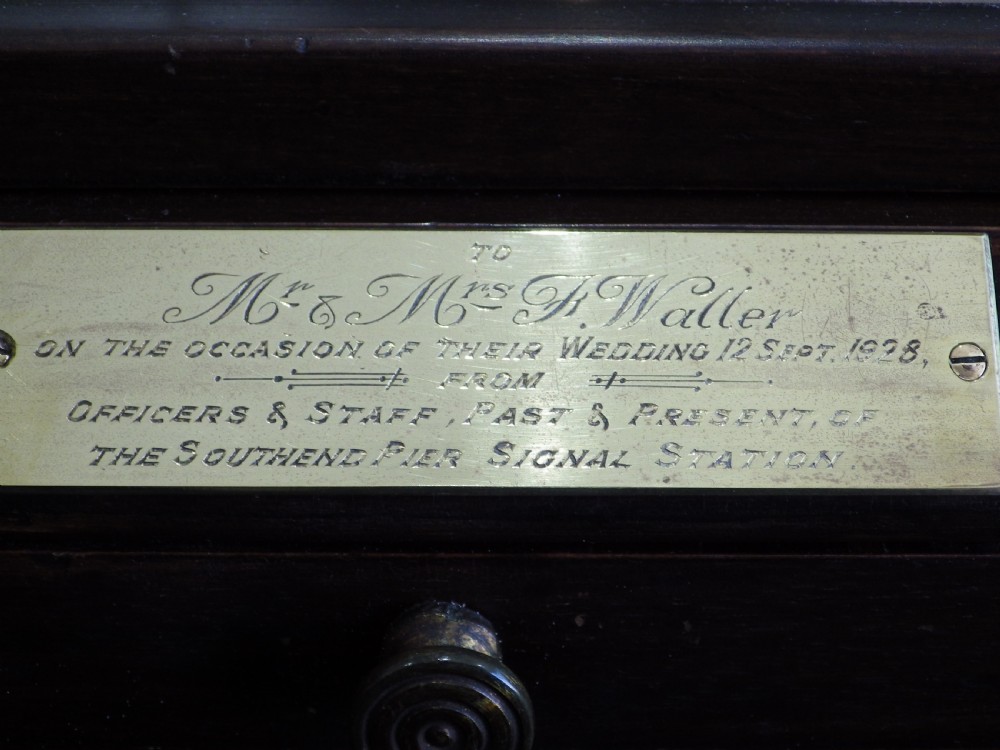 TO
Mr & Mrs F. Waller
ON THE OCCASION OF THEIR WEDDING 12 SEPT. 1928,
FROM
OFFICERS & STAFF, PAST & PRESENT, OF
THE SOUTHEND PIER SIGNAL STATION